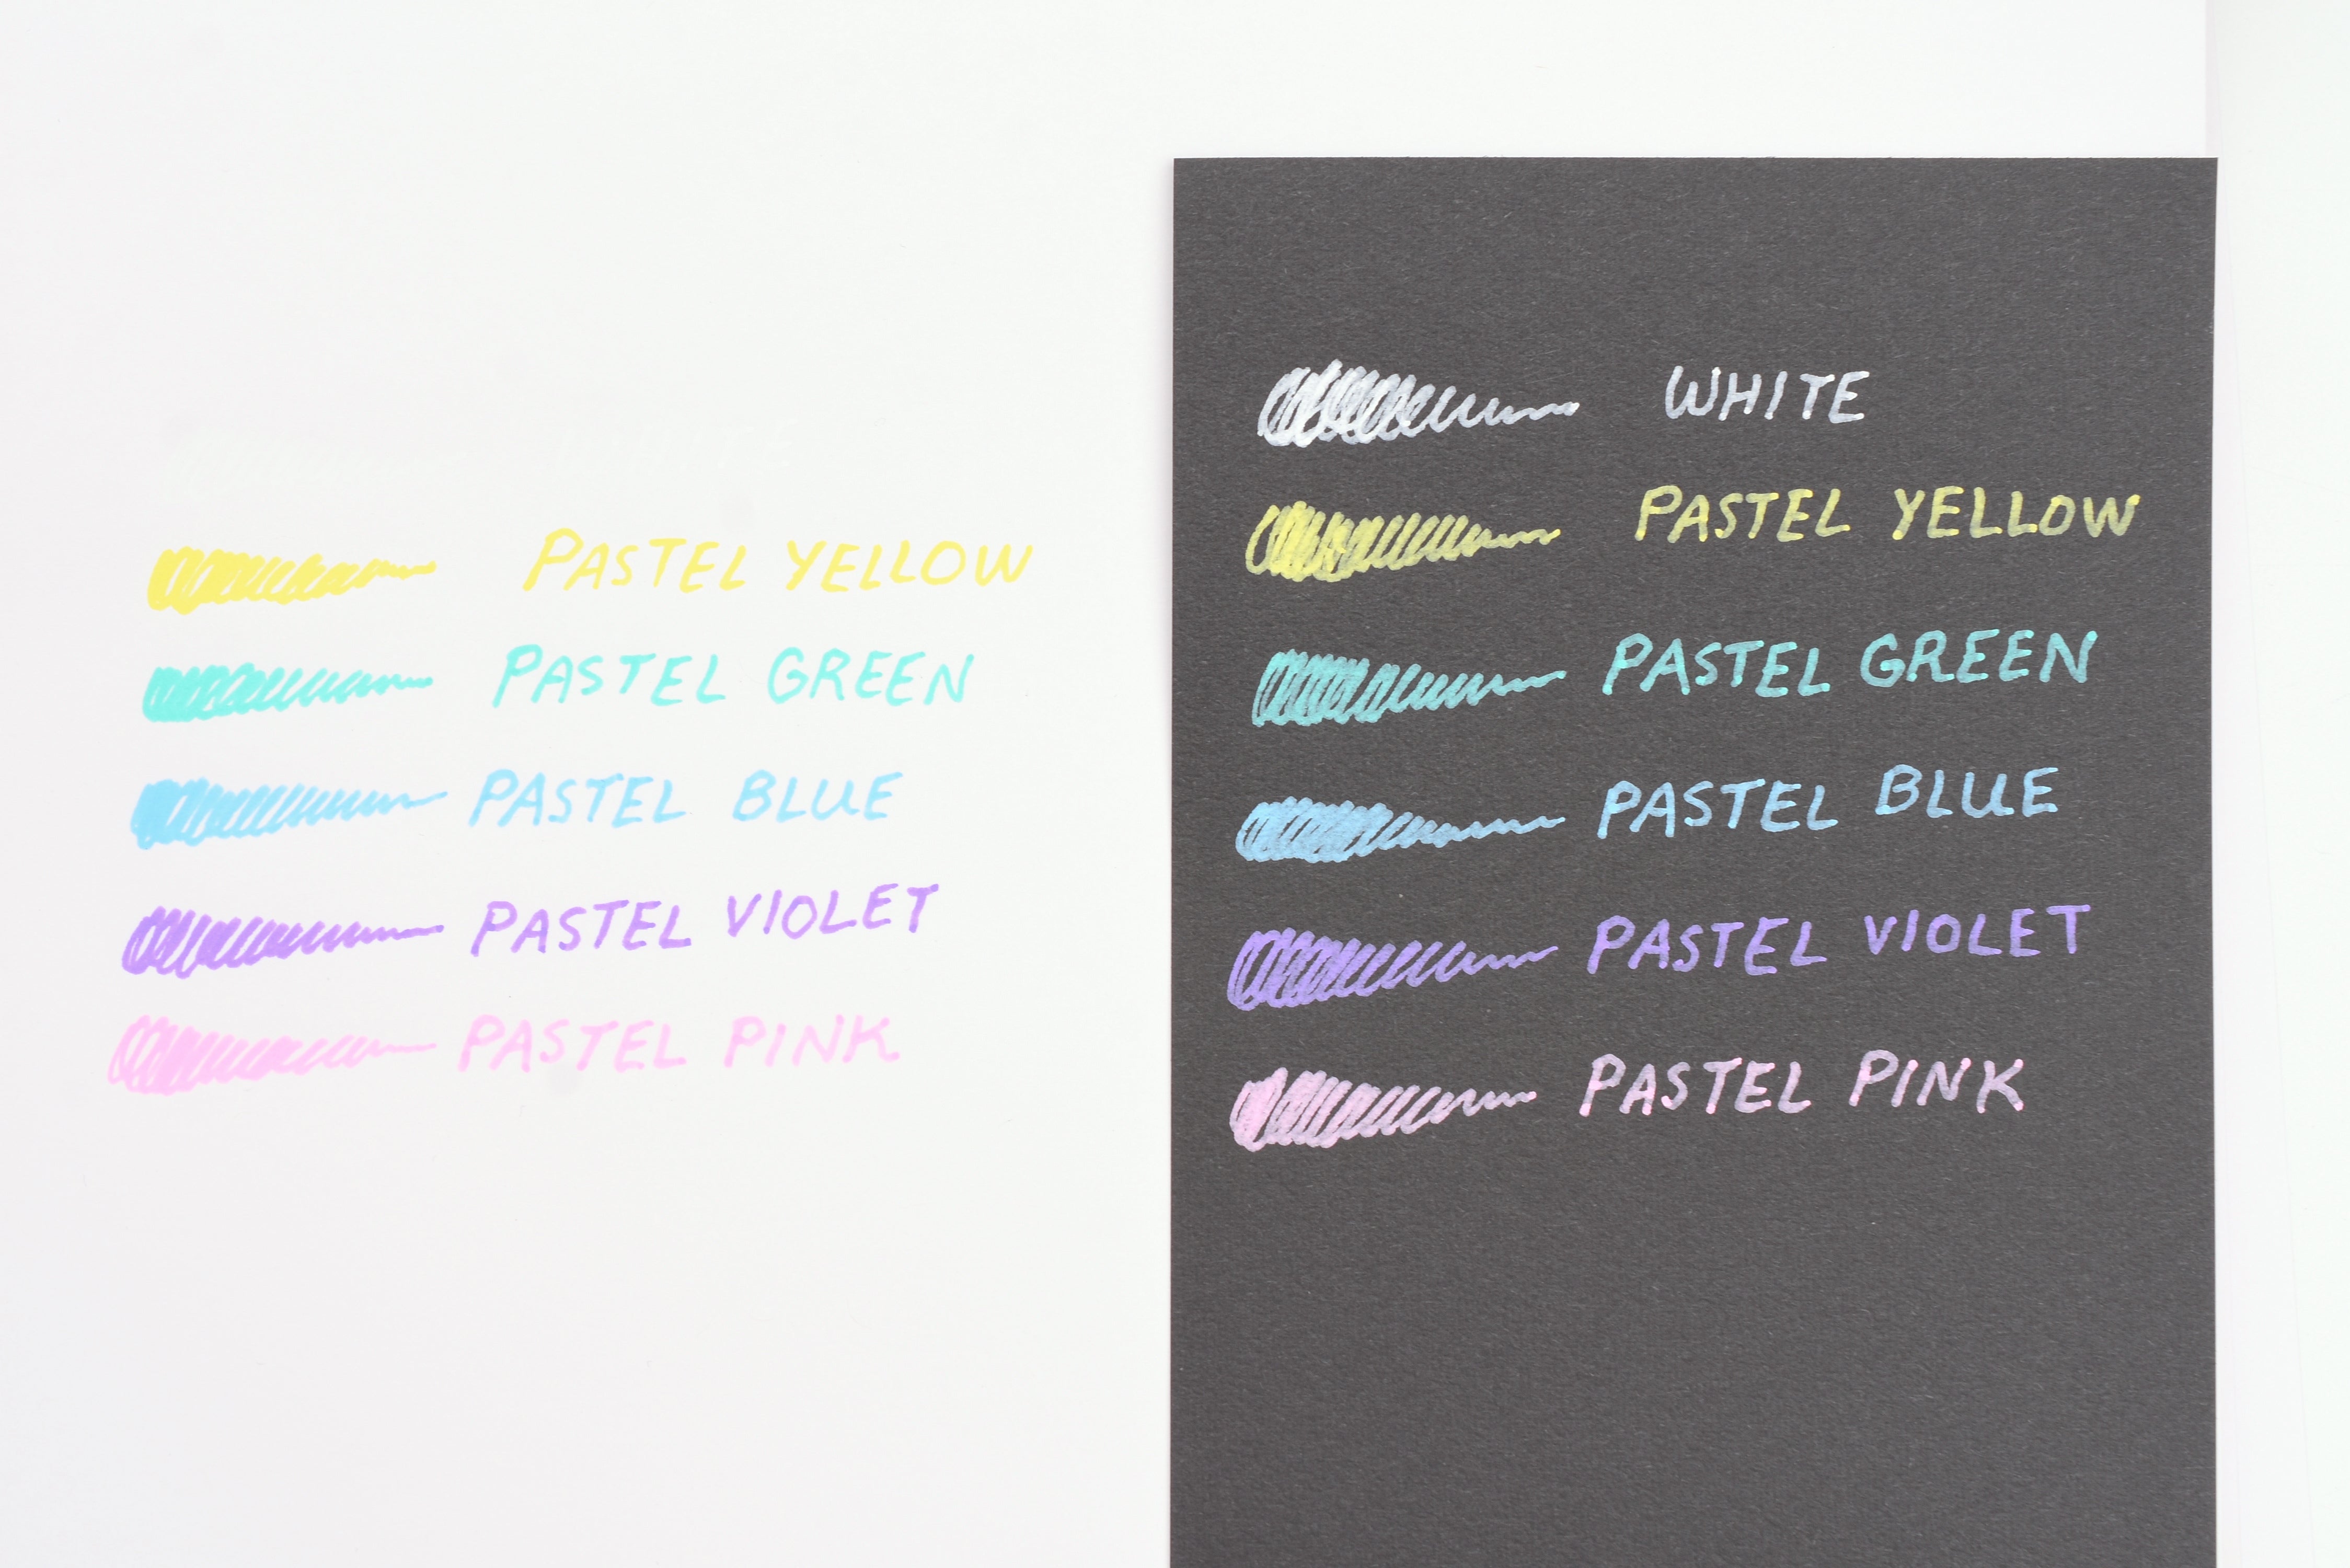 WHITE
PASTEL YELLOW
PASTEL GREEN
PASTEL BLUE
PASTEL VIOLET
PASTEL PINK
WHITE
PASTEL YELLOW
PASTEL GREEN
PASTEL BLUE
PASTEL VIOLET
PASTEL PINK